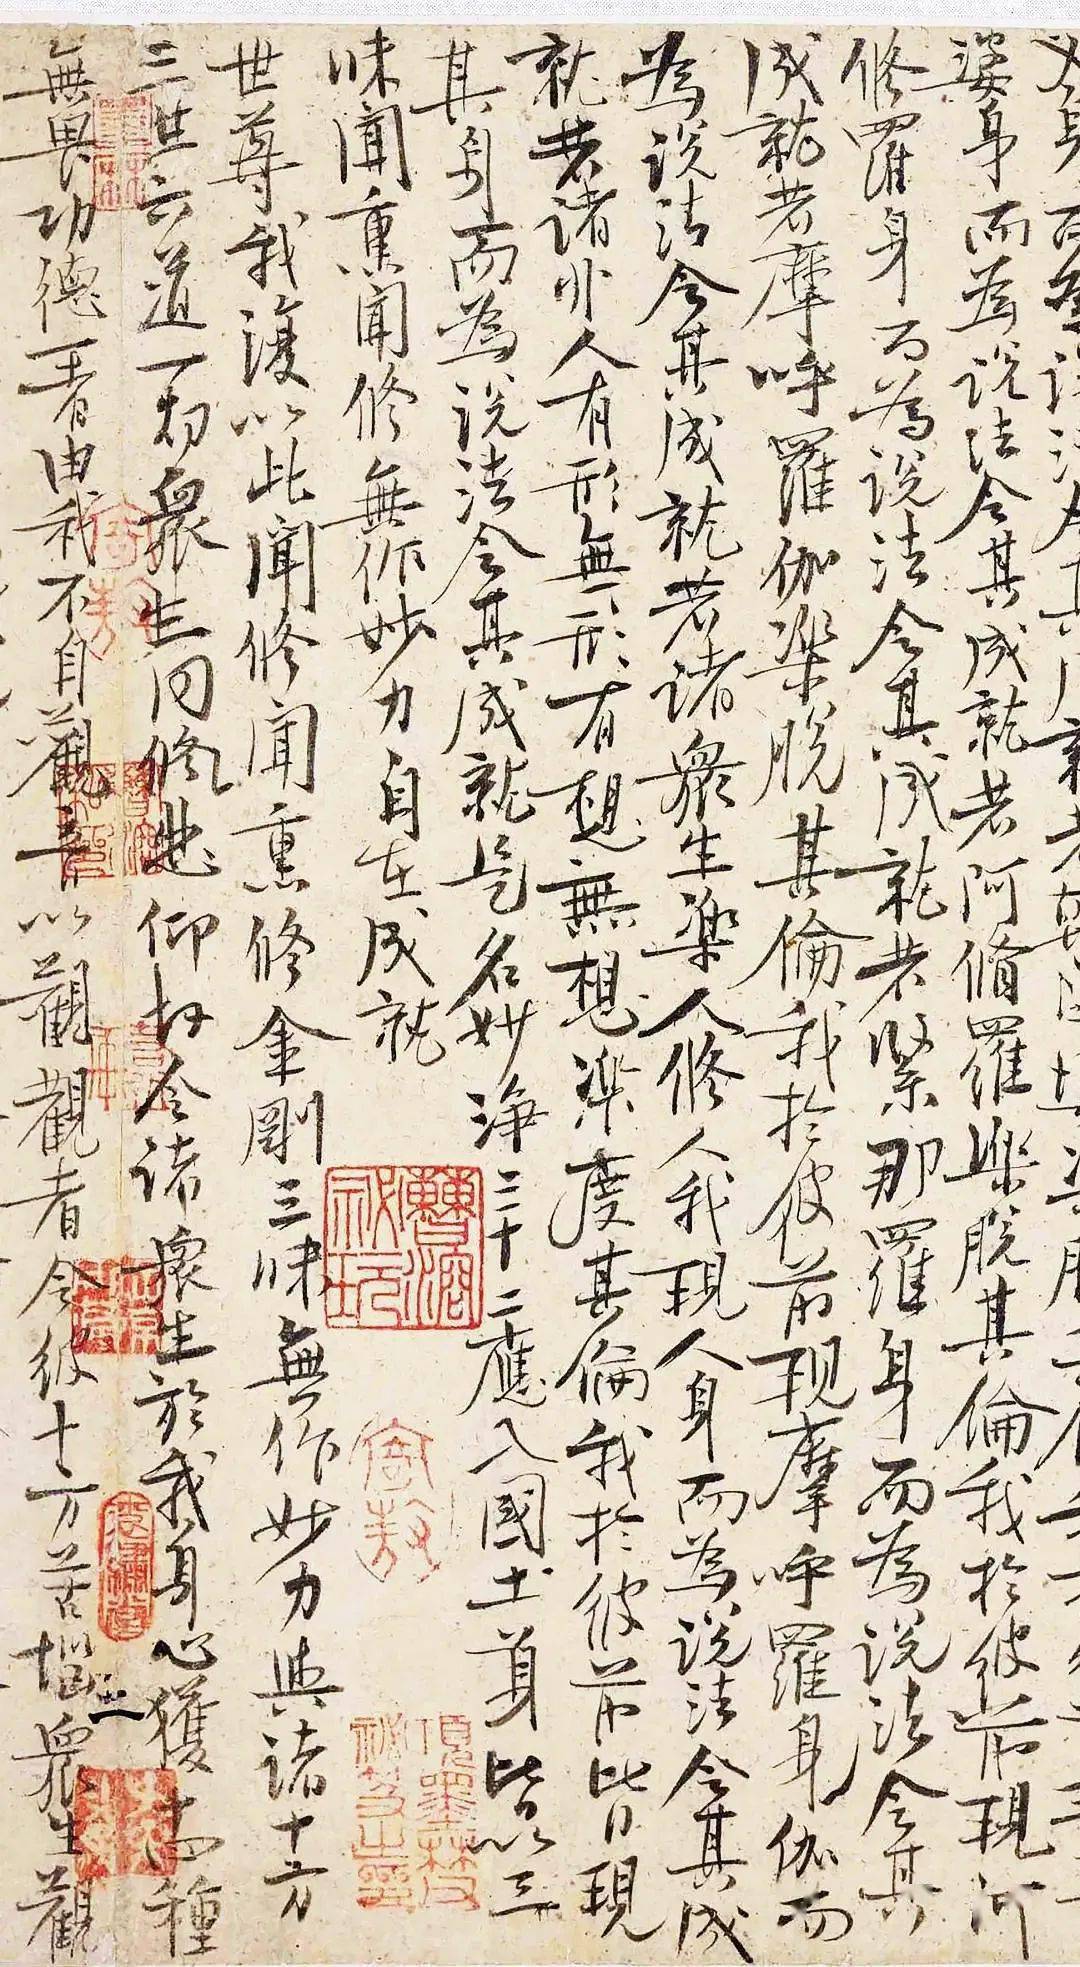 身而為說法令其成就若
婆身而為說法令其成就若阿脩羅樂脫其倫我於彼前現阿
修羅身而為說法令其成就若緊那羅身而為說法令其
成就若摩呼羅伽樂脫其倫我於彼前現摩呼羅身伽而
為說法令其成就若諸衆生樂人修人我現人身而為說法令其成
就若諸非人有形無形有想無想樂度其倫我於彼前皆現
其身而為說法令其成就是名妙淨三十二應入國土身皆以三
昧聞熏聞修無作妙力自在成就
世尊我復以此聞修聞熏修金剛三昧無作妙力與諸十方
三世六道一切衆生同修悲仰故令諸衆生於我身心獲十四種
無畏功德一者由我不自觀音以觀觀者令彼十方苦惱衆生觀
曹溶秘玩
項墨林父秘笈之印